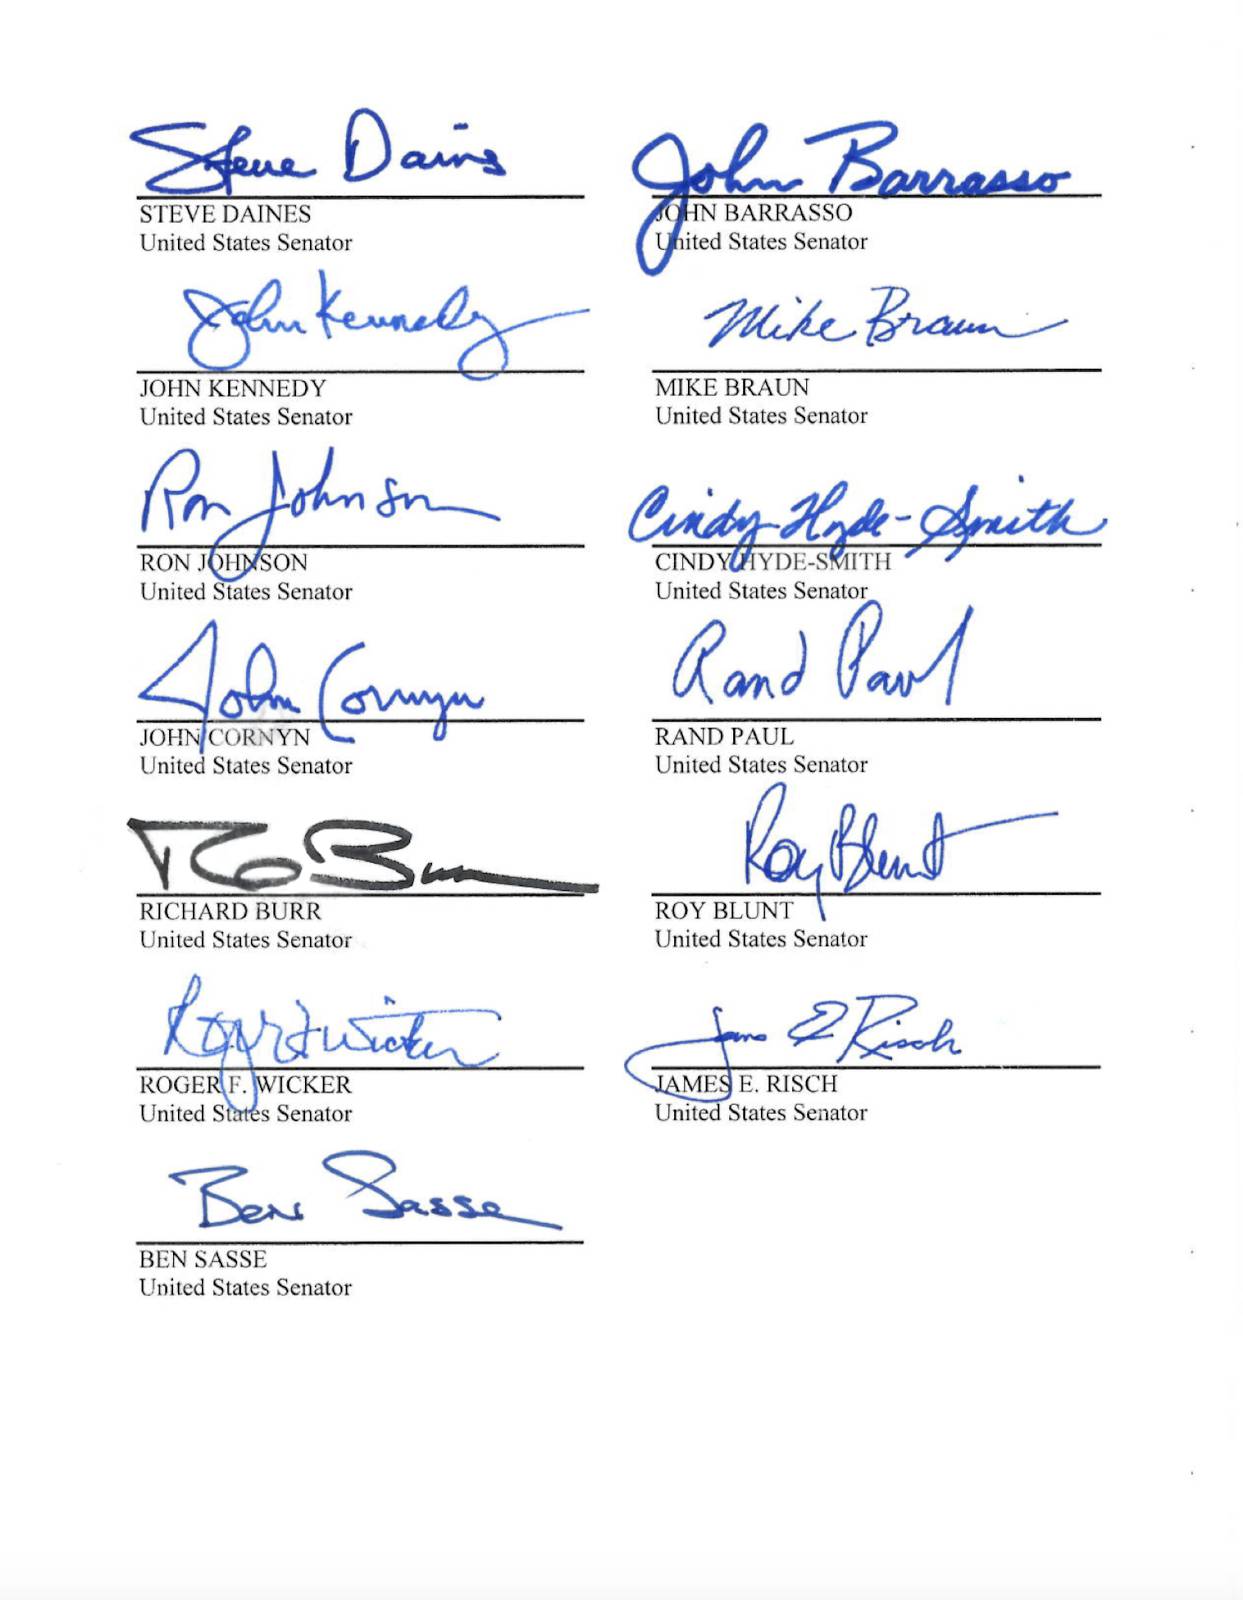 Steve Daines
STEVE DAINES
United States Senator
John Barrasso
JOHN BARRASSO
United States Senator
John Kennedy
JOHN KENNEDY
United States Senator
Mike Braun
MIKE BRAUN
United States Senator
Ron Johnson
RON JOHNSON
United States Senator
Cindy Hyde-Smith
CINDY HYDE-SMITH
United States Senator
John Cornyn
JOHN CORNYN
United States Senator
Rand Paul
RAND PAUL
United States Senator
R Burr
RICHARD BURR
United States Senator
Roy Blunt
ROY BLUNT
United States Senator
Roger F Wicker
ROGER F. WICKER
United States Senator
James E Risch
JAMES E. RISCH
United States Senator
Ben Sasse
BEN SASSE
United States Senator